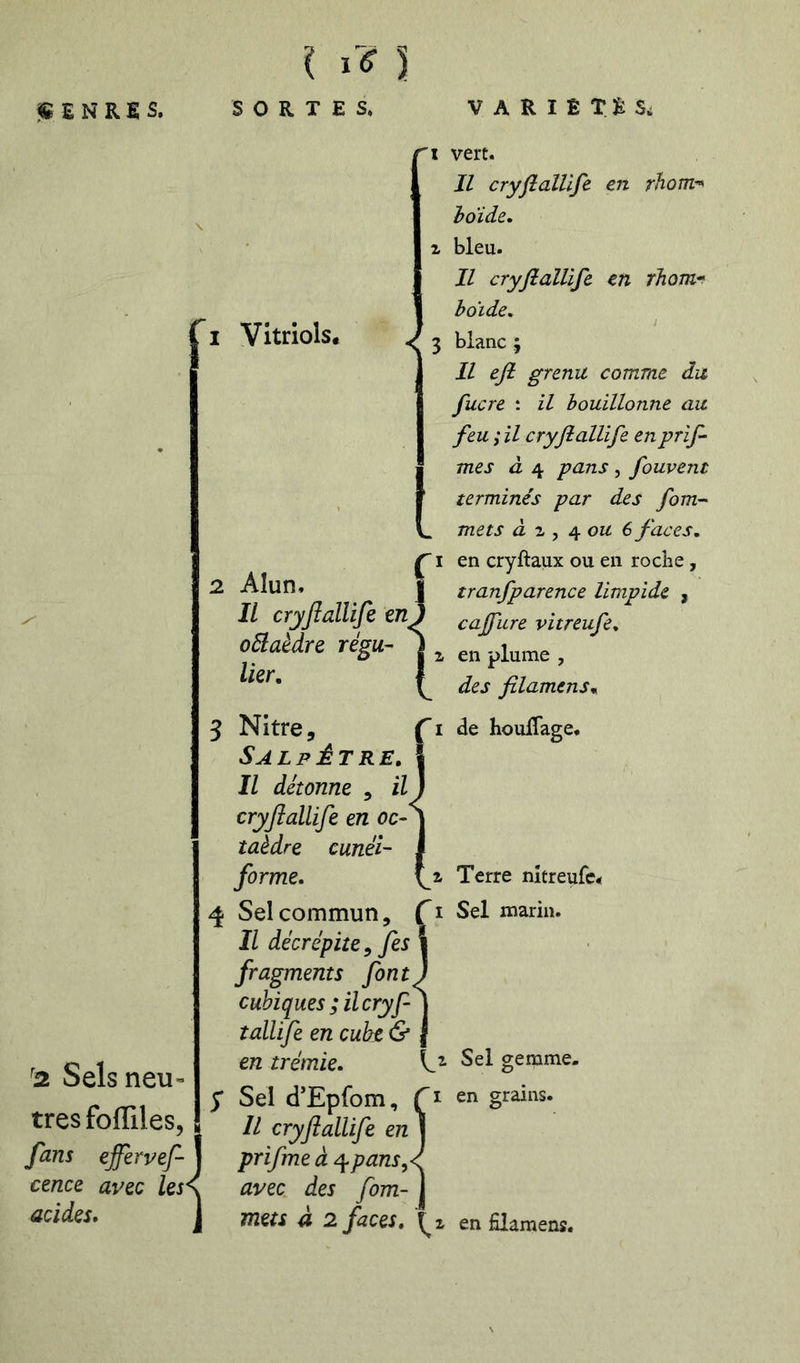 ( 16 )
GENRES. SORTES. VARIÉTÉS.
2 Sels neu-
tres fossiles,
sans efferves-
cence avec les
acides.
1 Vitriols.
1 vert.
Il crystallise en rhom-
boïde.
2 bleu.
Il crystallise en rhom-
boïde.
3 blanc ;
Il est grenu comme du
sucre : il bouillonne au
feu ; il crystallise en pris-
mes à 4 pans, souvent
terminés par des som-
mets à 2, 4 ou 6 faces.
2 Alun.
Il crystallise en
octaèdre régu-
lier.
1 en crystaux ou en roche,
transparence limpide,
cassure vitreuse.
2 en plume,
des filamens.
3 Nitre,
SALPÊTRE.
Il détonne, il
crystallise en oc-
taèdre cunéi-
forme.
1 de houssage.
2 Terre nitreuse.
4 Sel commun,
Il décrépite, ses
fragments sont
cubiques ; il crys-
tallise en cube &
en trémie.
1 Sel marin.
2 Sel gemme.
5 Sel d'Epsom,
Il crystallise en
prisme à 4 pans,
avec des som-
mets à 2 faces.
1 en grains.
2 en filamens.